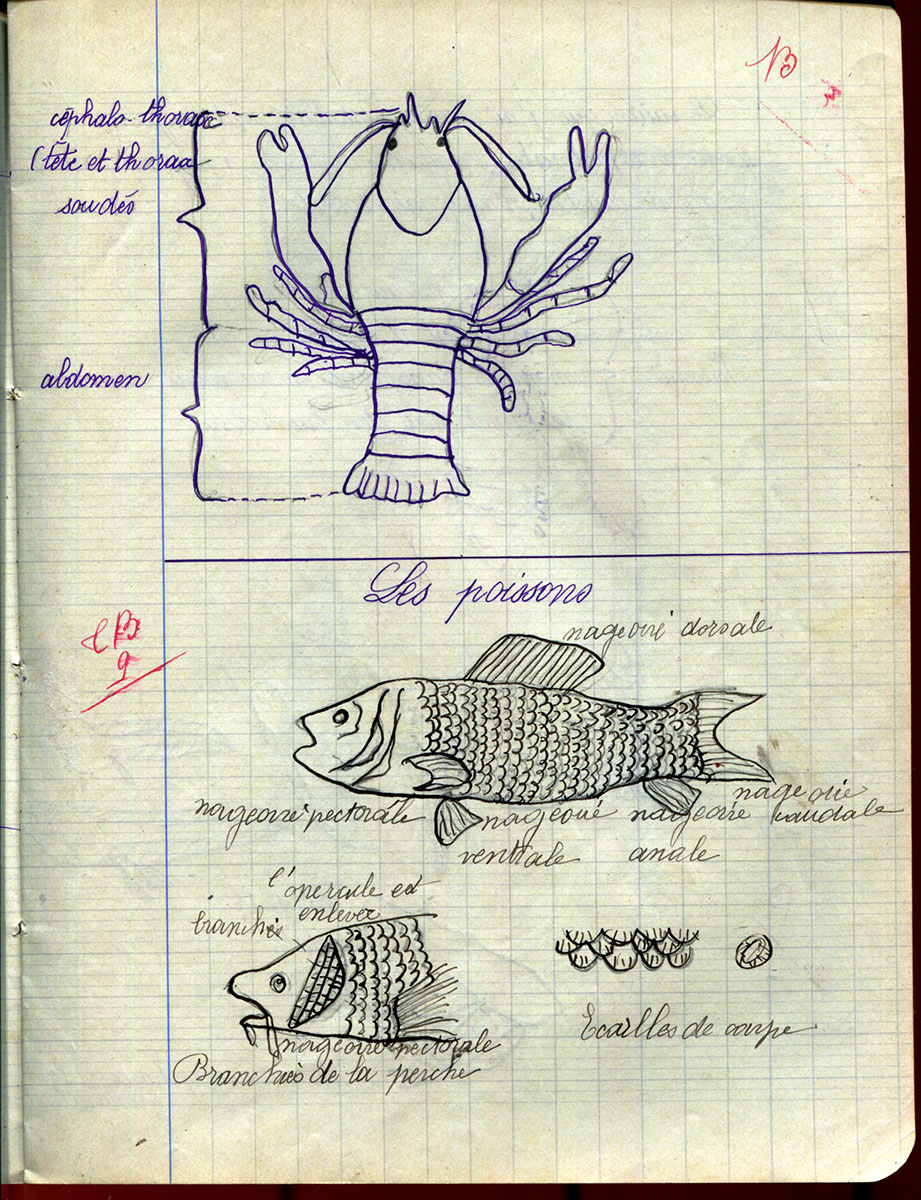 B
céphalo-thorax
(tête et thorax
soudés
abdomen
Les poissons
nageoire dorsale
B
9
nageoire pectorale
nageoire
ventrale
nageoire
anale
nageoire
caudale
l'opercule est
enlever
branchies
nageoire pectorale
Branchies de la perche
Ecailles de carpe